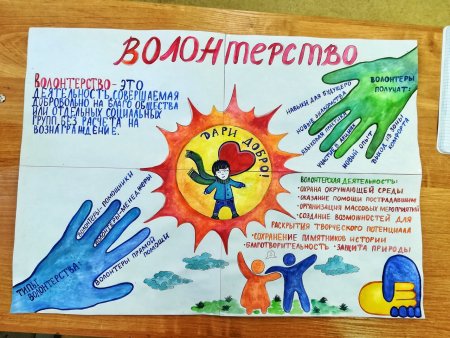 ВОЛОНТЕРСТВО
ВОЛОНТЕРСТВО - ЭТО
ДЕЯТЕЛЬНОСТЬ, СОВЕРШАЕМАЯ
ДОБРОВОЛЬНО НА БЛАГО ОБЩЕСТВА
ИЛИ ОТДЕЛЬНЫХ СОЦИАЛЬНЫХ
ГРУПП, БЕЗ РАСЧЕТА НА
ВОЗНАГРАЖДЕНИЕ.
ВОЛОНТЕРЫ
ПОЛУЧАТ:
НАВЫКИ ДЛЯ БУДУЩЕГО
НОВЫЕ ЗНАКОМСТВА
ЯЗЫКОВАЯ ПРАКТИКА
УЧАСТИЕ В
НОВЫЙ ОПЫТ
ВЫХОД ИЗ ЗОНЫ
КОМФОРТА
ДАРИ ДОБРО!
ВОЛОНТЕРСКАЯ ДЕЯТЕЛЬНОСТЬ:
• ОХРАНА ОКРУЖАЮЩЕЙ СРЕДЫ
• ОКАЗАНИЕ ПОМОЩИ ПОСТРАДАВШИМ
• ОРГАНИЗАЦИЯ МАССОВЫХ МЕРОПРИЯТИЙ
• СОЗДАНИЕ ВОЗМОЖНОСТЕЙ ДЛЯ
РАСКРЫТИЯ ТВОРЧЕСКОГО ПОТЕНЦИАЛА
• СОХРАНЕНИЕ ПАМЯТНИКОВ ИСТОРИИ
• БЛАГОТВОРИТЕЛЬНОСТЬ • ЗАЩИТА ПРИРОДЫ
ТИПЫ
ВОЛОНТЕРСТВА
ВОЛОНТЕРЫ-ПОМОЩНИКИ
ВОЛОНТЕРЫ-МЕНЕДЖЕРЫ
ВОЛОНТЕРЫ ПРЯМОЙ
ПОМОЩИ